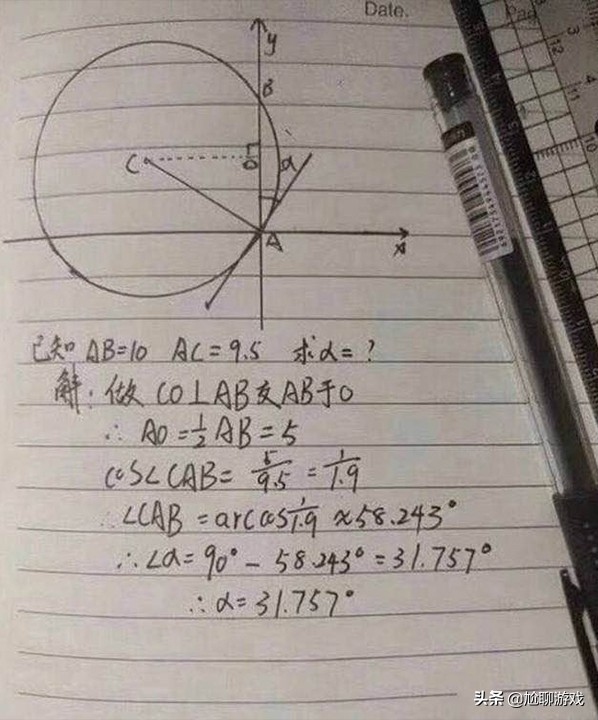 Date.
y
B
C
O
α
A
x
已知 AB=10 AC=9.5 求α=?
解:做 CO⊥AB交AB于O
∴ AO=1/2AB=5
cos∠CAB=5/9.5=1/1.9
∴∠CAB=arccos1/1.9≈58.243°
∴∠α=90°-58.243°=31.757°
∴α=31.757°
头条 @尬聊游戏